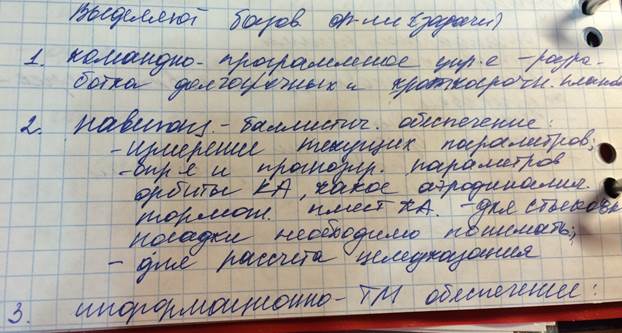 Выделяют базов. ф-ции (задачи)
1. командно-программное упр-е - разра-
ботка долгосрочных и краткосрочн. планов
2. навигац.-баллистич. обеспечение:
- измерение текущих параметров;
- опр-е и прогнозир. параметров
орбиты КА, какое аэродинамич.
тормож. имеет КА. - для стыковки
посадки необходимо понимать;
- для рассчета целеуказания
3. информационно-ТМ обеспечение: